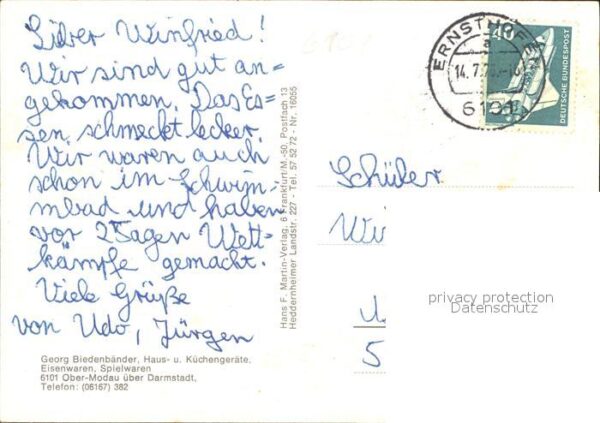 Lieber Winfried!
Wir sind gut an-
gekommen. Das Es-
sen schmeckt lecker.
Wir waren auch
schon im Schwim-
mbad und haben
vor 2 Tagen Wett-
kämpfe gemacht.
Viele Grüße
von Udo, Jürgen
Georg Biedenbänder, Haus- u. Küchengeräte,
Eisenwaren, Spielwaren
6101 Ober-Modau über Darmstadt,
Telefon: (06167) 382
Hans F. Martin-Verlag, 6 Frankfurt/M.-50, Postfach 13
Heddernheimer Landstr. 227 - Tel. 57 52 72 - Nr. 16055
ERNSTHOFEN
a
14.7.7
6101
40
DEUTSCHE BUNDESPOST
Schüler
Wi
5
privacy protection
Datenschutz